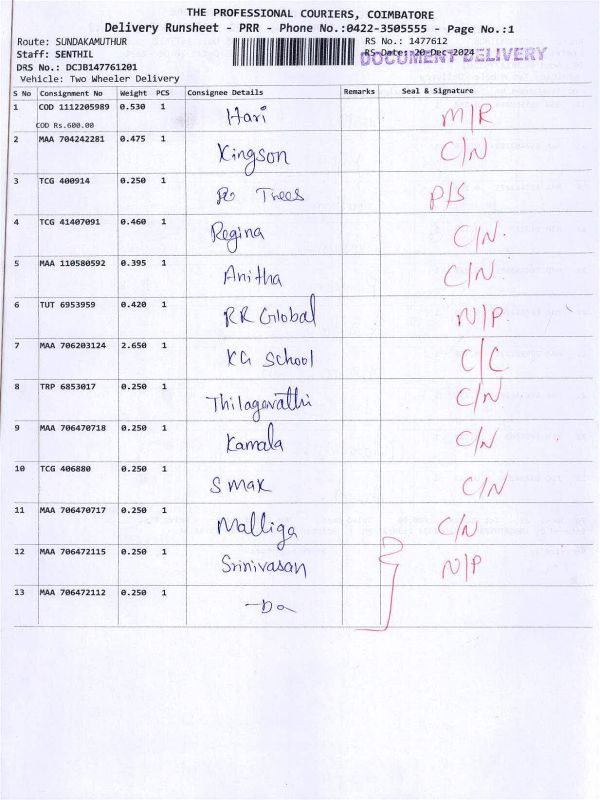 THE PROFESSIONAL COURIERS, COIMBATORE
Delivery Runsheet - PRR - Phone No.:0422-3505555 - Page No.:1
Route: SUNDAKAMUTHUR RS No.: 1477612
Staff: SENTHIL RS Date: 20-Dec-2024
DOCUMENT DELIVERY
DRS No.: DCJB147761201
Vehicle: Two Wheeler Delivery
S No Consignment No Weight PCS Consignee Details Remarks Seal & Signature
1 COD 1112205989 0.530 1 Hari M/R
COD Rs.600.00
2 MAA 704242281 0.475 1 Kingson C/N
3 TCG 400914 0.250 1 Trees P/S
4 TCG 41407091 0.460 1 Regina C/N.
5 MAA 110580592 0.395 1 Anitha C/N.
6 TUT 6953959 0.420 1 RR Global N/P.
7 MAA 706203124 2.650 1 KG School C/C
8 TRP 6853017 0.250 1 Thilagavathi C/N
9 MAA 706470718 0.250 1 Kamala C/N
10 TCG 406880 0.250 1 S max C/N
11 MAA 706470717 0.250 1 Malliga C/N
12 MAA 706472115 0.250 1 Srinivasan N/P
13 MAA 706472112 0.250 1 -Do